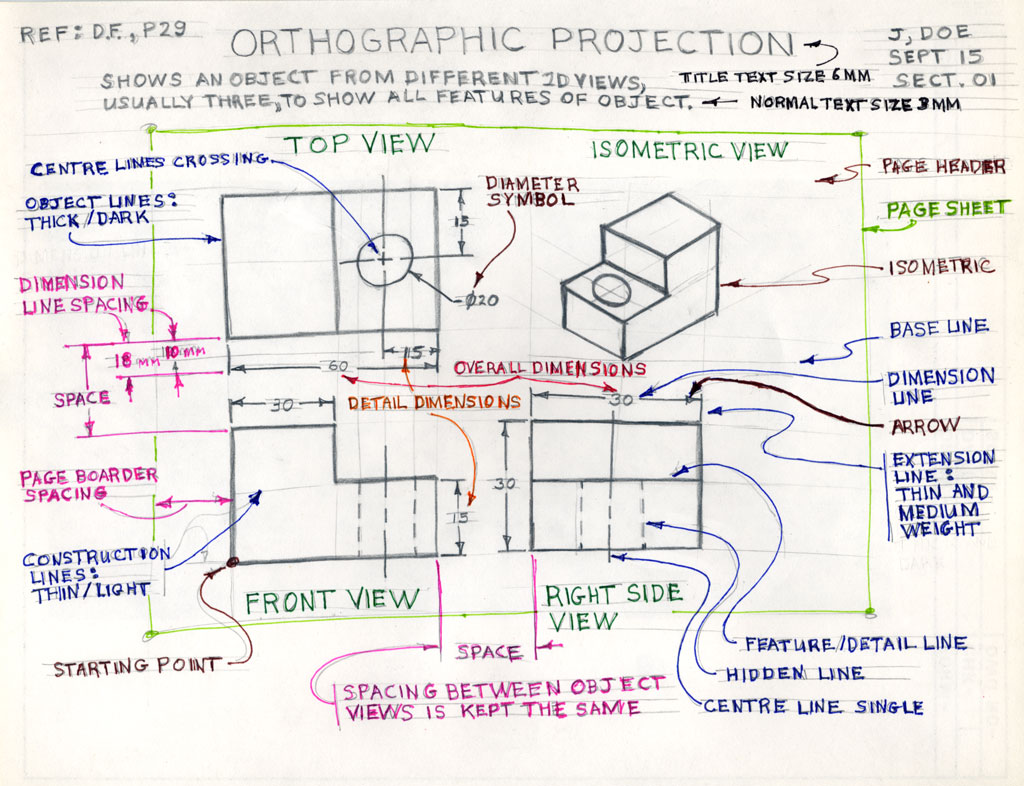 REF: D.F., P29
ORTHOGRAPHIC PROJECTION
J, DOE
SEPT 15
SECT. 01
SHOWS AN OBJECT FROM DIFFERENT 2D VIEWS,
USUALLY THREE, TO SHOW ALL FEATURES OF OBJECT.
TITLE TEXT SIZE 6MM
NORMAL TEXT SIZE 3MM
TOP VIEW
ISOMETRIC VIEW
CENTRE LINES CROSSING
PAGE HEADER
DIAMETER
SYMBOL
OBJECT LINES:
THICK/DARK
PAGE SHEET
15
ISOMETRIC
DIMENSION
LINE SPACING
Ø20
BASE LINE
18 MM
10 MM
15
60
OVERALL DIMENSIONS
DIMENSION
LINE
SPACE
30
DETAIL DIMENSIONS
30
ARROW
EXTENSION
LINE:
THIN AND
MEDIUM
WEIGHT
PAGE BOARDER
SPACING
30
15
CONSTRUCTION
LINES:
THIN/LIGHT
FRONT VIEW
RIGHT SIDE
VIEW
STARTING POINT
SPACE
FEATURE/DETAIL LINE
HIDDEN LINE
CENTRE LINE SINGLE
SPACING BETWEEN OBJECT
VIEWS IS KEPT THE SAME